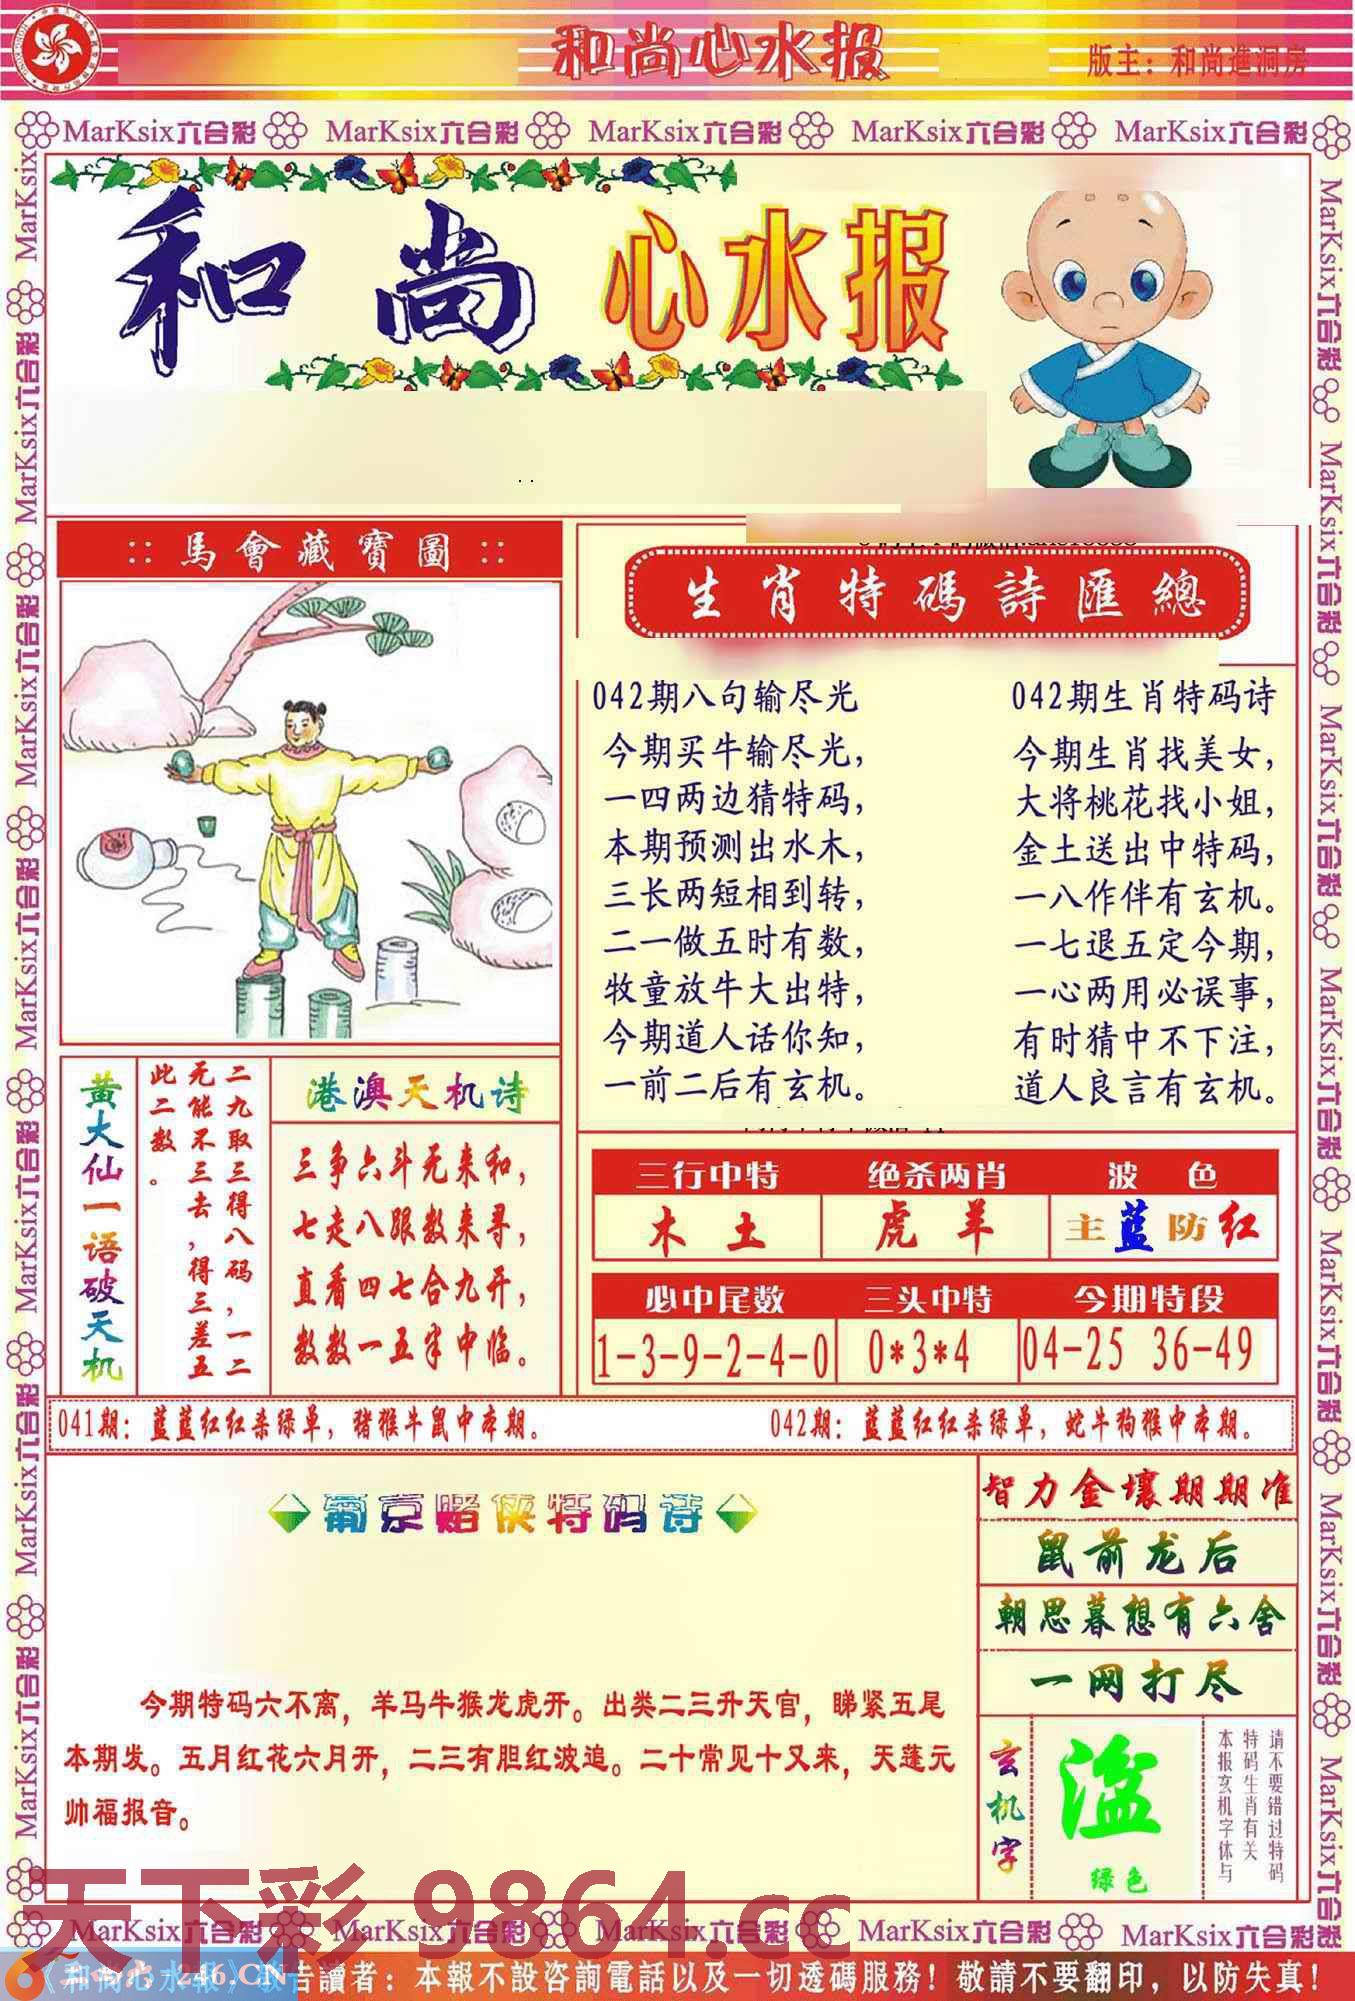 和尚心水报
版主：和尚進洞房
MarKsix六合彩 MarKsix六合彩 MarKsix六合彩 MarKsix六合彩 MarKsix六合彩
和尚 心水报
馬會藏寶圖
生肖特碼詩匯總
042期八句输尽光
今期买牛输尽光，
一四两边猜特码，
本期预测出水木，
三长两短相到转，
二一做五时有数，
牧童放牛大出特，
今期道人话你知，
一前二后有玄机。
042期生肖特码诗
今期生肖找美女，
大将桃花找小姐，
金土送出中特码，
一八作伴有玄机。
一七退五定今期，
一心两用必误事，
有时猜中不下注，
道人良言有玄机。
黄大仙一语破天机
二九取三得八码，一二
无能不三去，得三差五
此二数。
港澳天机诗
三争六斗无来和，
七走八跟数来寻，
直看四七合九开，
数数一五半中临。
三行中特 绝杀两肖 波色
木土 虎羊 主蓝防红
必中尾数 三头中特 今期特段
1-3-9-2-4-0 0*3*4 04-25 36-49
041期：蓝蓝红红杀绿单，猪猴牛鼠中本期。
042期：蓝蓝红红杀绿单，蛇牛狗猴中本期。
葡京赌侠特码诗
今期特码六不离，羊马牛猴龙虎开。出类二三升天官，睇紧五尾
本期发。五月红花六月开，二三有胆红波追。二十常见十又来，天蓬元
帅福报音。
智力金壤期期准
鼠前龙后
朝思暮想有六舍
一网打尽
玄机字
溢
绿色
请不要错过特码
特码生肖有关
本报玄机字体与
天下彩 9864.cc
MarKsix六合彩 MarKsix六合彩 MarKsix六合彩 MarKsix六合彩 MarKsix六合彩
246.CN
告讀者：本報不設咨詢電話以及一切透碼服務！敬請不要翻印，以防失真！